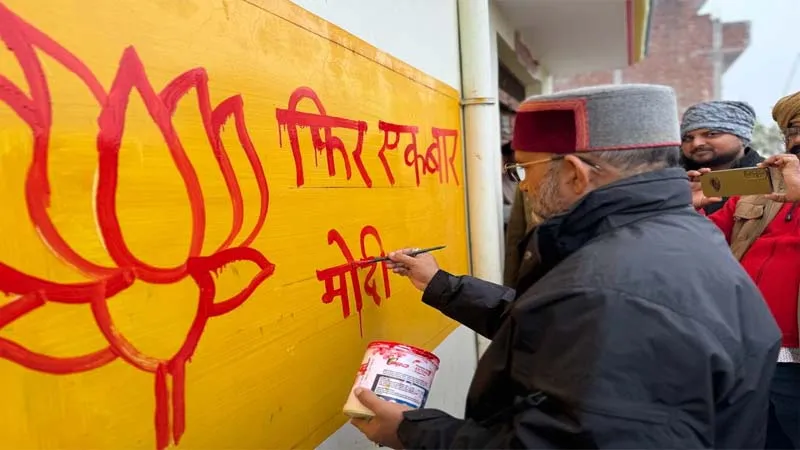 फिर एकबार
मोदी